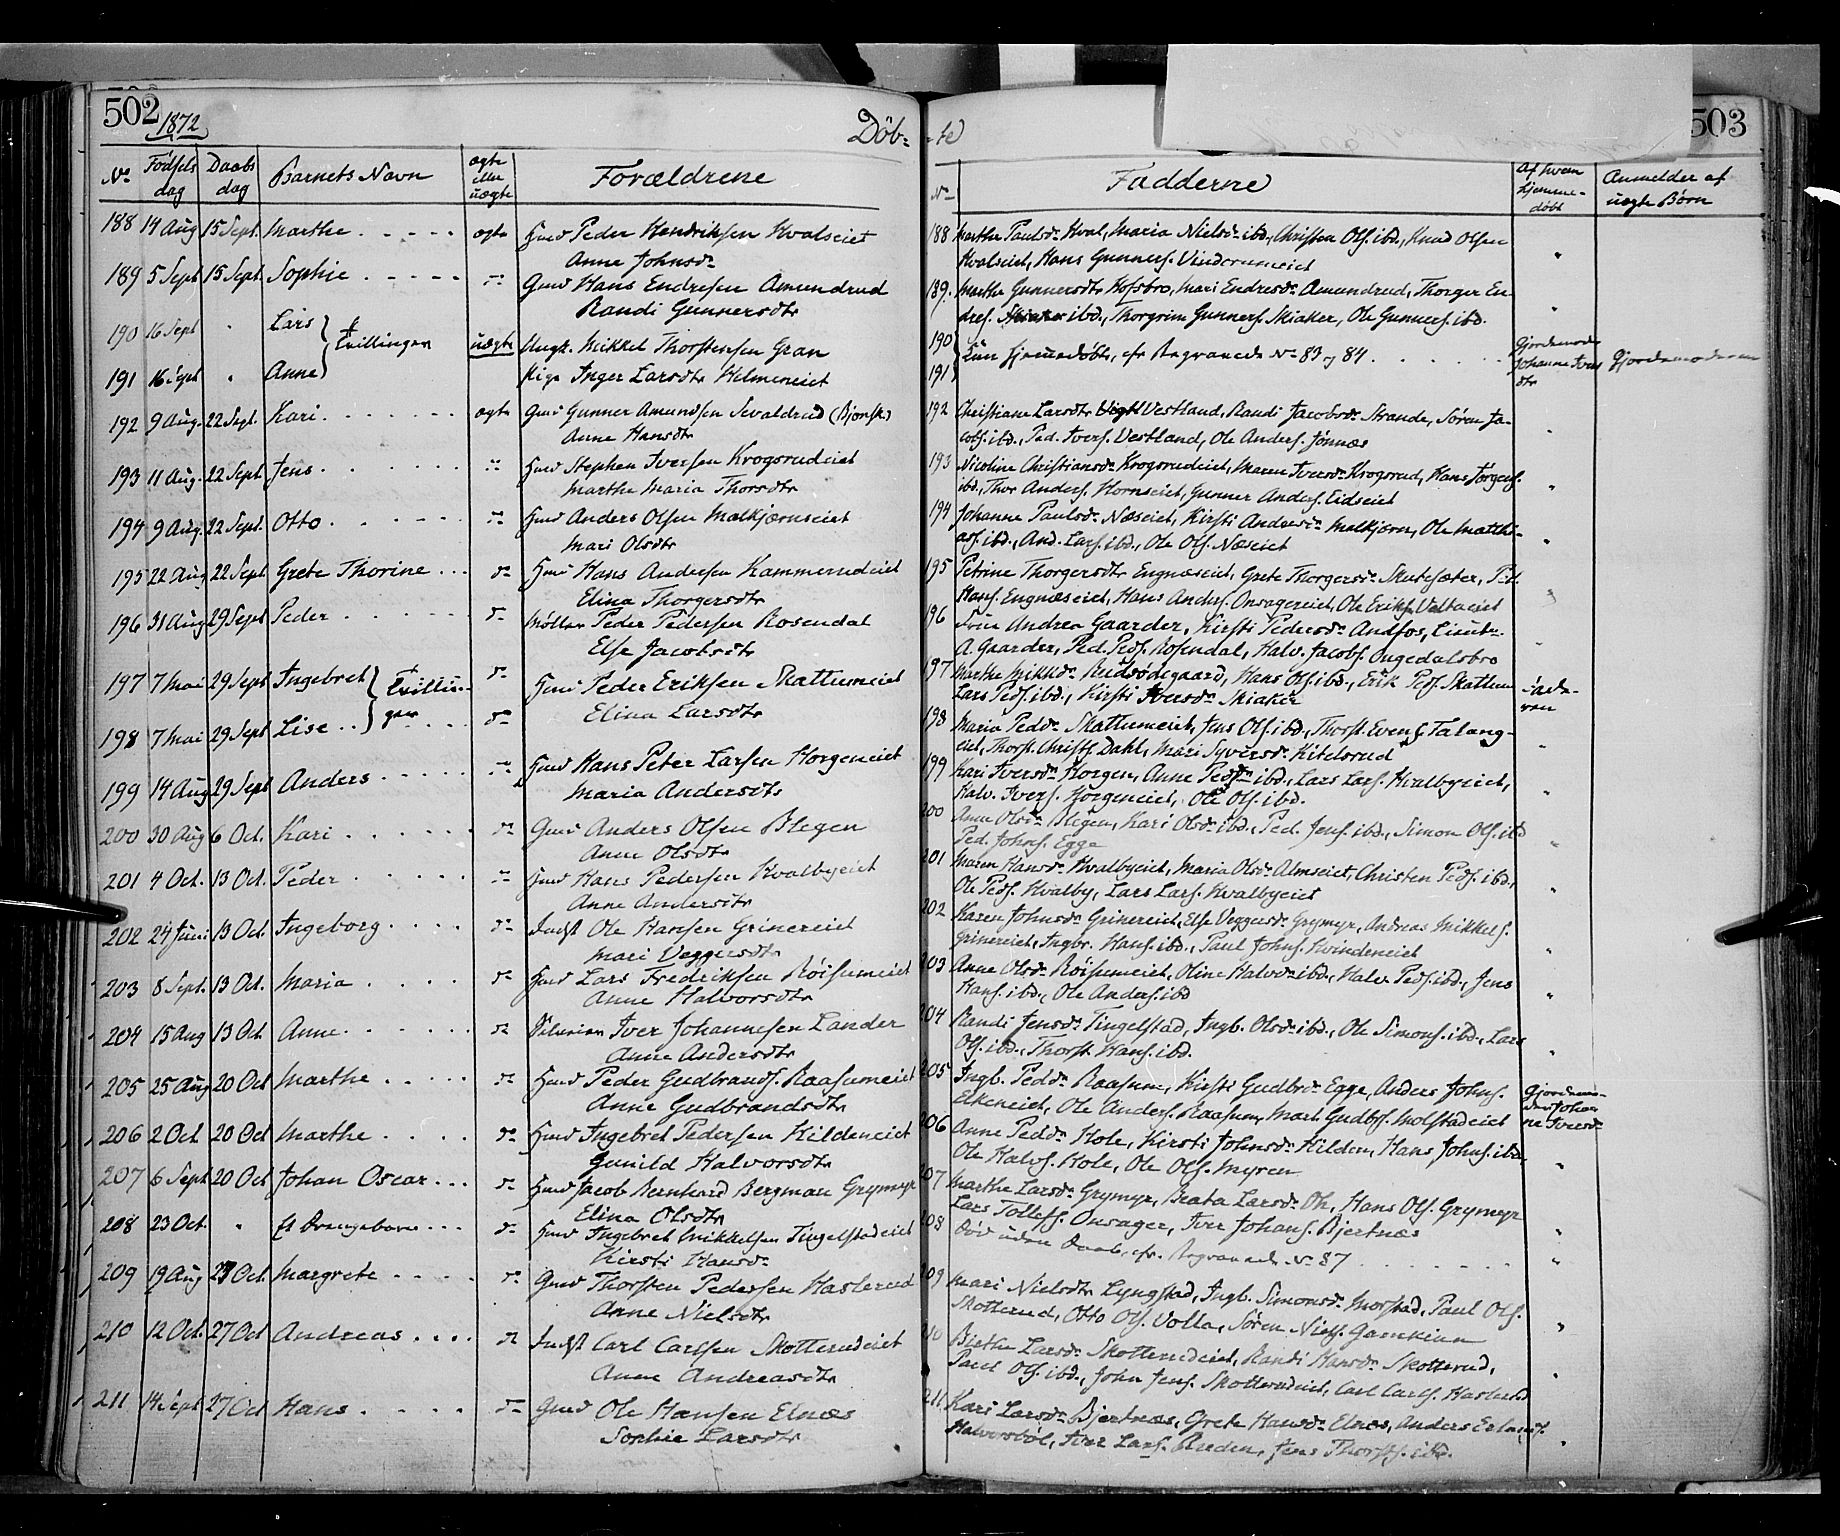 502
1872
Døb-
No
Fødsels dag
Daabs dag
Barnets Navn
ægte eller uægte
Forældrene
188 14 Aug 15 Sept. Marthe ægte Huusd Peder Hendriksen Kvalseiet
Anne Johnsdr
189 5 Sept 15 Sept. Sophie do Gmd Hans Endresen Amundrud
Randi Gunnersdtr
190 16 Sept " Lars } Tvillinger uægte Ungk. Mikkel Thorstensen Gran
191 16 Sept " Anne } Pige Inger Larsdtr Helmeneiet
192 9 Aug. 22 Sept. Kari ægte Gmd Gunner Amundsen Sevaldrud (Bjonsk.)
Anne Hansdtr
193 11 Aug. 22 Sept. Jens do Stephen Iversen Krogsrudeiet
Marthe Maria Thorsdtr
194 9 Aug. 22 Sept. Otto do Anders Olsen Molkjærnseiet
Mari Olsdtr
195 22 Aug 22 Sept Grete Thorine do Hans Andersen Kammerudeiet
Elina Thorgersdtr
196 31 Aug 29 Sept Peder do Møller Peder Pedersen Rosendal
Else Jacobsdtr
197 7 Mai 29 Sept Ingebret } Tvillinger do Peder Eriksen Skattumeiet
198 7 Mai 29 Sept Lise } do Elina Larsdtr
199 14 Aug 29 Sept Anders do Hans Peter Larsen Horgeneiet
Maria Andersdtr
200 30 Aug 6 Oct. Kari do Gmd Anders Olsen Blegen
Anne Olsdtr
201 4 Oct. 13 Oct. Peder do Hans Pedersen Hvalbyeiet
Anne Andersdtr
202 24 Juni 13 Oct Ingeborg do Indst Ole Hansen Grinereiet
Mari Veggersdtr
203 8 Sept. 13 Oct. Maria do Lars Fredriksen Røisumeiet
Anne Halvorsdtr
204 15 Aug 13 Oct Anne do Iver Johannesen Lander
Anne Andersdtr
205 25 Aug 20 Oct Marthe do Peder Gudbrands. Raasumeiet
Anne Gudbrandsdtr
206 2 Oct 20 Oct Marthe do Ingebret Pedersen Hildeneiet
Gunild Halvorsdtr
207 6 Sept 20 Oct Johan Oscar do Jacob Bernhard Bergman Grymyr
Elina Olsdtr
208 23 Oct. " Et Drengebarn do Ingebret Mikkelsen Tingelstadeiet
Kirsti Hansdr
209 19 Aug 27 Oct. Margrete do Gmd Thorsten Pedersen Haslerud
Anne Nielsdtr
210 12 Oct. 27 Oct Andreas do Indst Carl Carlsen Skotterudeiet
Anne Andreasdtr
211 14 Sept 27 Oct Hans do Gmd Ole Hansen Elnæs
Sophie Larsdtr
503
-te
No
Fadderne
Af hvem hjemmedøbt
Anmelder af uægte Børn
188 Marthe Paulsdr Hval, Maria Nielsdr ibd., Christen Ols. ibd., Knud Olsen
Kvalseiet, Hans Gunners. Vinderumeiet
189. Marthe Gunnersdtr Hofsbro, Mari Endresdr Amundrud, Thorger En-
dres. ibd., Thorgrim Gunners. Skiaker, Ole Gunners. ibd.
190 } hjemmedøbte, cfr Begravede No 83 og 84 Gjordemoder Johanne Iversdtr Gjordemoderen
191 }
192 Christiane Larsdtr Vestland, Randi Jacobsdr Strande, Søren Ja-
cobs. ibd., Ped. Ivers. Vestland, Ole Anders. Jønnæs
193 Nicoline Christiansdr Krogsrudeiet, Maren Iversdr Krogsrud, Hans Jørgens.
ibd., Thor Anders. Hornseiet, Gunner Anders. Eidseiet
194 Johanne Paulsdr Næseiet, Kirsti Andersdr Molkjærn, Ole Matthi-
as. ibd., And. Lars. ibd., Ole Ols. Næseiet
195 Petrine Thorgersdtr Engnæseiet, Grete Thorgersdr Skutesæter, Ped.
Hans. Engnæseiet, Hans Anders. Onsagereiet, Ole Eriks.
196 Frue Andrea Gaarder, Kirsti Pedersdr Andfos, Lieutn.
A. Gaarder, Ped. Peds. Rosendal, Halv. Jacobs. Ongedalsbro
197 Marthe Mikkdr Rudsødegaard, Hans Ols. ibd., Erik Peds. Skattum
Lars Peds. ibd., Kirsti Iversdr Skiaker
198 Maria Peddr Skattumeiet, Jens Ols. ibd., Thorst. Evens. Falang-
eiet, Thorst. Christs. Dahl, Mari Syversdr Kitelsrud
199 Kari Iversdr Horgen, Anne Pedsdr ibd., Lars Lars. Hvalbyeiet,
Halv. Ivers. Horgeneiet, Ole Ols. ibd.
200 Anne Olsdr Blegen, Kari Olsdr ibd., Ped. Jens. ibd., Simon Ols. ibd
Ped. Johns. Egge
201 Maren Hansdr Hvalbyeiet, Maria Olsdr Almseiet, Christen Peds. ibd.,
Ole Peds. Hvalby, Lars Lars. Hvalbyeiet
202 Karen Johnsdr Grinereiet, Else Veggersdr Grymyr, Andreas Mikkels.
Grinereiet, Ingbr. Hans. ibd., Paul Johns. Hvindeneiet
203 Anne Olsdr Røisumeiet, Oline Halvdr ibd., Halv. Peds. ibd., Jens
Hans. ibd., Ole Anders. ibd
204 Randi Jensdr Tingelstad, Ingb. Olsdr ibd., Ole Simons. ibd., Lars
Ols. ibd., Thorst. Hans. ibd.
205 Ingb. Peddr Raasum, Kirsti Gudbrdr Egge, Anders Johns. Gjordemoder Johanne Iversdr
Ekeneiet, Ole Anders. Raasum, Mart. Gudbs. Molstadeiet
206 Anne Peddr Hole, Kirsti Johnsdr Hilden, Hans Johns. ibd.
Ole Halvs. Hole, Ole Ols. Myren
207 Marthe Larsdr Grymyr, Beata Larsdr Oh, Hans Ols. Grymyr
Lars Tollefs. Onsager, Iver Johans. Bjertnæs
208 Død uden Daab, cfr. Begravede No 87
209 Mari Nielsdtr Lyngstad, Ingb. Simonsdr Morstad, Paul Ols.
Skotterud, Otto Ols. Volla, Søren Niels. Gamkinn
210 Birthe Larsdr Skotterudeiet, Randi Hansdr Skotterud,
Paul Ols. ibd., John Jens. Skotterudeiet, Carl Carls. Haslerud
211 Kari Larsdr Bjertnæs, Grete Hansdr Elnæs, Anders Erlands.
Halvorsbøl, Iver Lars. Ruden, Jens Thorsts. ibd.